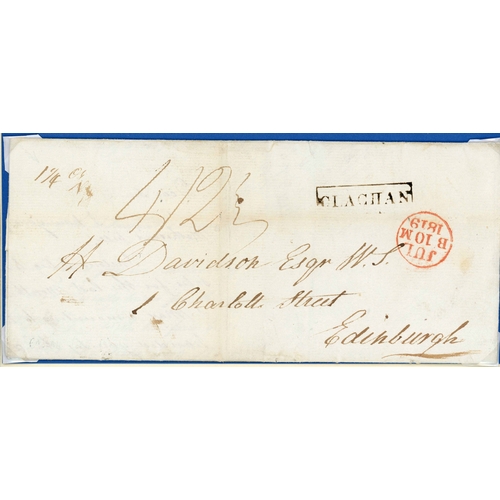 1¼ oz
4/2½
CLACHAN
JUL
B 10 M
1819
H Davidson Esqr W.S.
1 Charlotte Street
Edinburgh